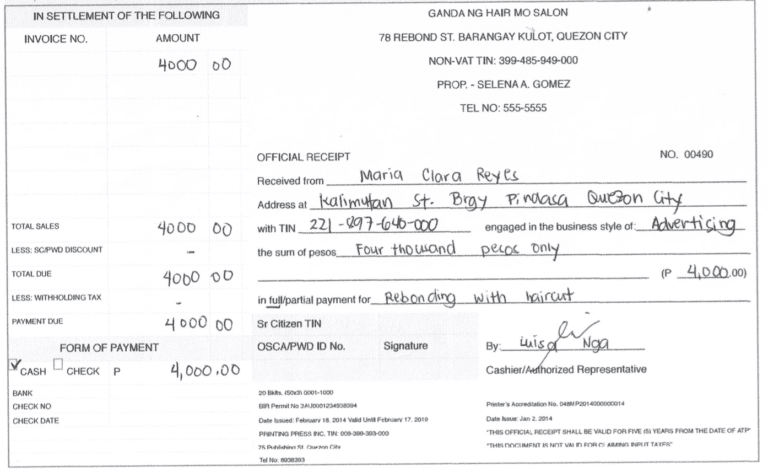 IN SETTLEMENT OF THE FOLLOWING
INVOICE NO. AMOUNT
4000 00
TOTAL SALES 4000 00
LESS: SC/PWD DISCOUNT -
TOTAL DUE 4000 00
LESS: WITHHOLDING TAX -
PAYMENT DUE 4000 00
FORM OF PAYMENT
CASH CHECK P 4,000.00
BANK
CHECK NO
CHECK DATE
GANDA NG HAIR MO SALON
78 REBOND ST. BARANGAY KULOT, QUEZON CITY
NON-VAT TIN: 399-485-949-000
PROP. - SELENA A. GOMEZ
TEL NO: 555-5555
OFFICIAL RECEIPT NO. 00490
Received from Maria Clara Reyes
Address at Kalimutan St. Brgy Pindasa Quezon City
with TIN 221-897-640-000 engaged in the business style of: Advertising
the sum of pesos Four thousand pecos only
(P 4,000.00)
in full/partial payment for Rebonding with haircut
Sr Citizen TIN
OSCA/PWD ID No. Signature
By: Luisa Nga
Cashier/Authorized Representative
20 Bklts. (50x3) 0001-1000
BIR Permit No
Date Issued: February 18, 2014 Valid Until February 17, 2019
PRINTING PRESS INC. TIN: 009-399-393-000
75 Publishing St. Quezon City
Tel No: 8938393
Printer's Accreditation No.
Date Issue: Jan 2, 2014
"THIS OFFICIAL RECEIPT SHALL BE VALID FOR FIVE (5) YEARS FROM THE DATE OF ATP"
"THIS DOCUMENT IS NOT VALID FOR CLAIMING INPUT TAXES"